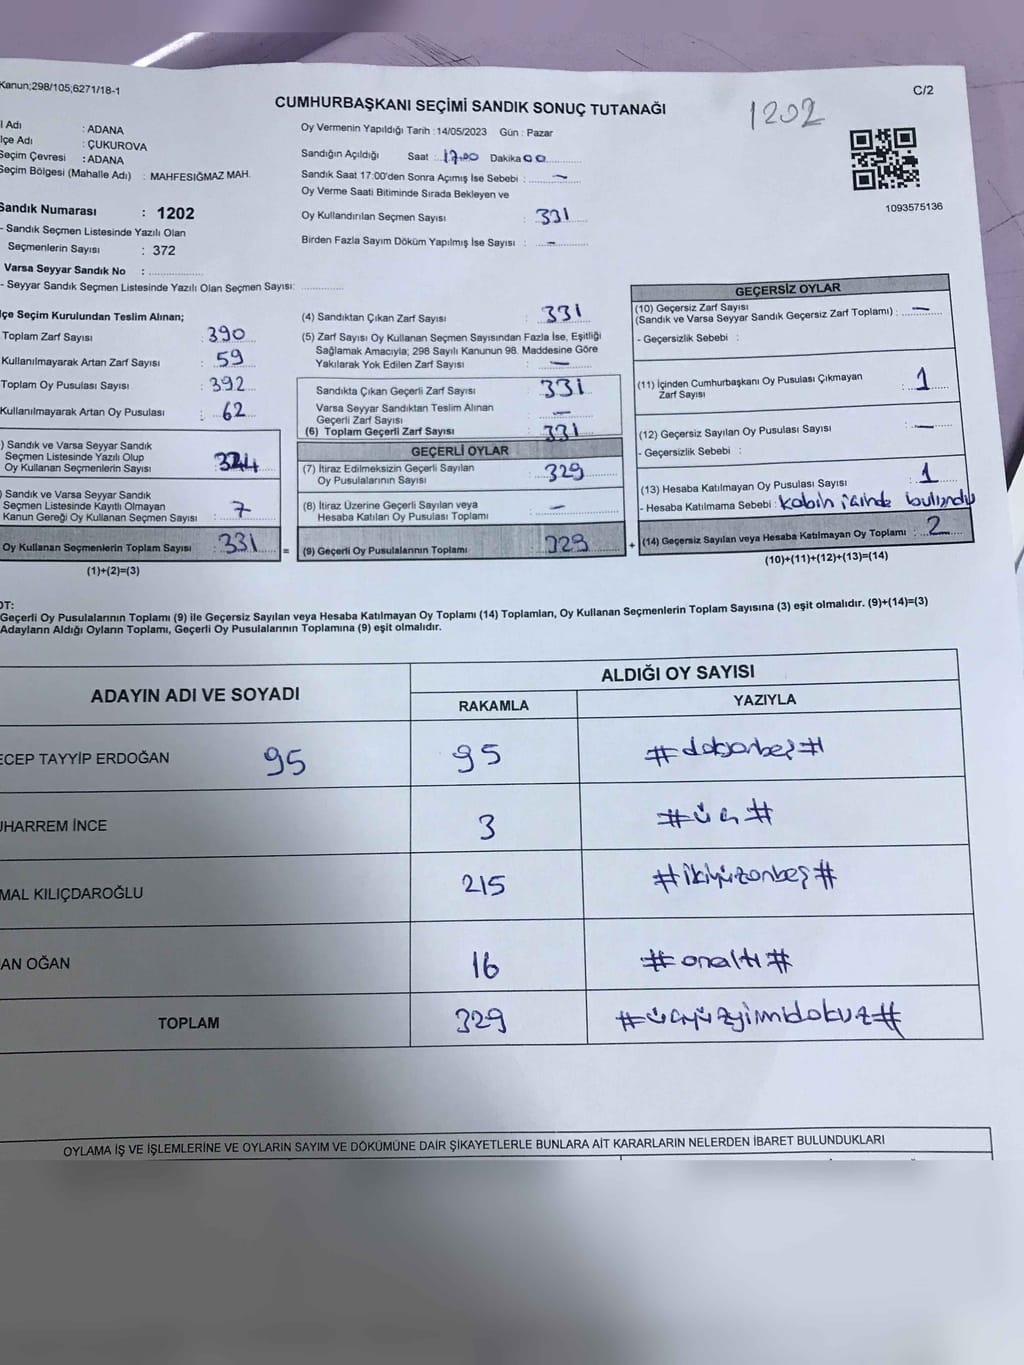 Kanun;298/105,6271/18-1
C/2
CUMHURBAŞKANI SEÇİMİ SANDIK SONUÇ TUTANAĞI
1202
l Adı : ADANA
lçe Adı : ÇUKUROVA
Seçim Çevresi : ADANA
Seçim Bölgesi (Mahalle Adı) : MAHFESIĞMAZ MAH.
Oy Vermenin Yapıldığı Tarih : 14/05/2023 Gün : Pazar
Sandığın Açıldığı Saat : 17.00 Dakika 00
Sandık Saat 17:00'den Sonra Açımış İse Sebebi : —
Oy Verme Saati Bitiminde Sırada Bekleyen ve
Oy Kullandırılan Seçmen Sayısı : 331
Birden Fazla Sayım Döküm Yapılmış İse Sayısı : —
1093575136
Sandık Numarası : 1202
- Sandık Seçmen Listesinde Yazılı Olan
Seçmenlerin Sayısı : 372
Varsa Seyyar Sandık No :
- Seyyar Sandık Seçmen Listesinde Yazılı Olan Seçmen Sayısı:
lçe Seçim Kurulundan Teslim Alınan;
Toplam Zarf Sayısı : 390
Kullanılmayarak Artan Zarf Sayısı : 59
Toplam Oy Pusulası Sayısı : 392
Kullanılmayarak Artan Oy Pusulası : 62
) Sandık ve Varsa Seyyar Sandık
Seçmen Listesinde Yazılı Olup
Oy Kullanan Seçmenlerin Sayısı : 324
) Sandık ve Varsa Seyyar Sandık
Seçmen Listesinde Kayıtlı Olmayan
Kanun Gereği Oy Kullanan Seçmen Sayısı : 7
Oy Kullanan Seçmenlerin Toplam Sayısı : 331 =
(1)+(2)=(3)
(4) Sandıktan Çıkan Zarf Sayısı : 331
(5) Zarf Sayısı Oy Kullanan Seçmen Sayısından Fazla İse, Eşitliği
Sağlamak Amacıyla; 298 Sayılı Kanunun 98. Maddesine Göre
Yakılarak Yok Edilen Zarf Sayısı : —
Sandıkta Çıkan Geçerli Zarf Sayısı : 331
Varsa Seyyar Sandıktan Teslim Alınan
Geçerli Zarf Sayısı : —
(6) Toplam Geçerli Zarf Sayısı : 331
GEÇERLİ OYLAR
(7) İtiraz Edilmeksizin Geçerli Sayılan
Oy Pusulalarının Sayısı : 329
(8) İtiraz Üzerine Geçerli Sayılan veya
Hesaba Katılan Oy Pusulası Toplamı : —
(9) Geçerli Oy Pusulalarının Toplamı : 329 +
GEÇERSİZ OYLAR
(10) Geçersiz Zarf Sayısı
(Sandık ve Varsa Seyyar Sandık Geçersiz Zarf Toplamı) : —
- Geçersizlik Sebebi :
(11) İçinden Cumhurbaşkanı Oy Pusulası Çıkmayan
Zarf Sayısı : 1
(12) Geçersiz Sayılan Oy Pusulası Sayısı : —
- Geçersizlik Sebebi :
(13) Hesaba Katılmayan Oy Pusulası Sayısı : 1
- Hesaba Katılmama Sebebi : kabin içinde bulundu
(14) Geçersiz Sayılan veya Hesaba Katılmayan Oy Toplamı : 2
(10)+(11)+(12)+(13)=(14)
OT:
Geçerli Oy Pusulalarının Toplamı (9) ile Geçersiz Sayılan veya Hesaba Katılmayan Oy Toplamı (14) Toplamları, Oy Kullanan Seçmenlerin Toplam Sayısına (3) eşit olmalıdır. (9)+(14)=(3)
Adayların Aldığı Oyların Toplamı, Geçerli Oy Pusulalarının Toplamına (9) eşit olmalıdır.
ADAYIN ADI VE SOYADI
ALDIĞI OY SAYISI
RAKAMLA YAZIYLA
ECEP TAYYİP ERDOĞAN 95 95 #doksanbeş#
UHARREM İNCE 3 #üç#
MAL KILIÇDAROĞLU 215 #ikiyüzonbeş#
AN OĞAN 16 #onaltı#
TOPLAM 329 #üçyüzyirmidokuz#
OYLAMA İŞ VE İŞLEMLERİNE VE OYLARIN SAYIM VE DÖKÜMÜNE DAİR ŞİKAYETLERLE BUNLARA AİT KARARLARIN NELERDEN İBARET BULUNDUKLARI